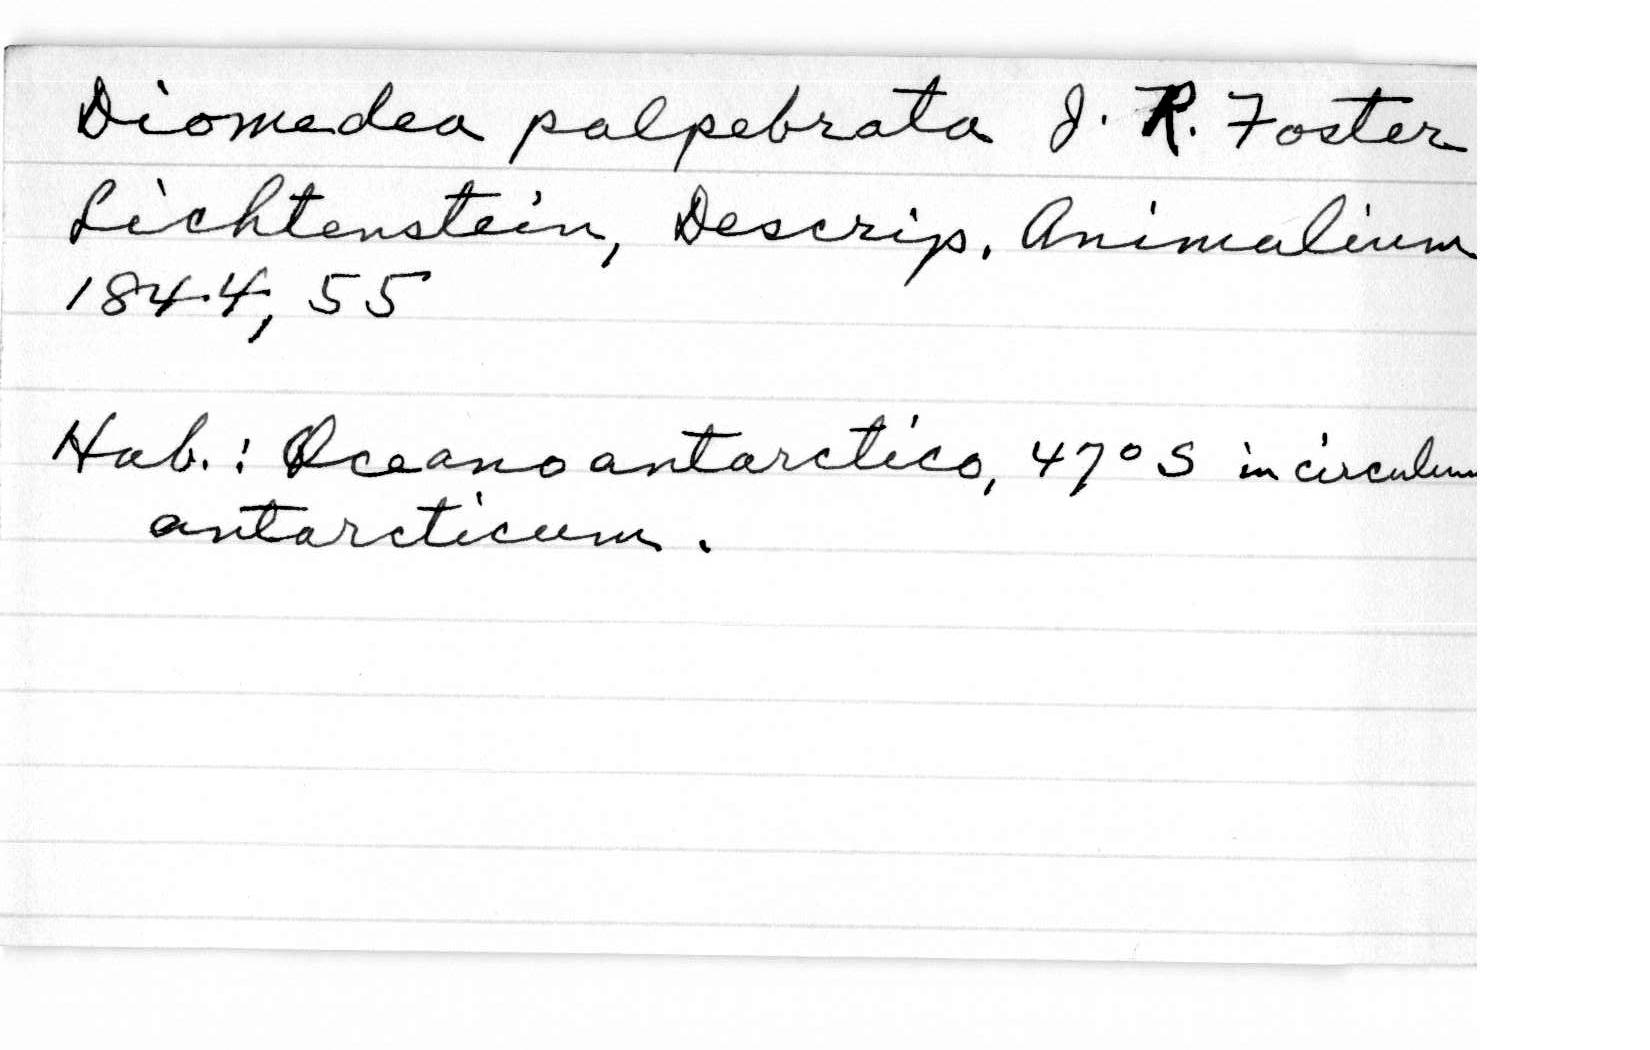 Diomedea palpebrata J. R. Foster
Lichtenstein, Descrip. Animalium
1844, 55
Hab. : Oceano antarctico, 47° S in circulum
antarcticum.